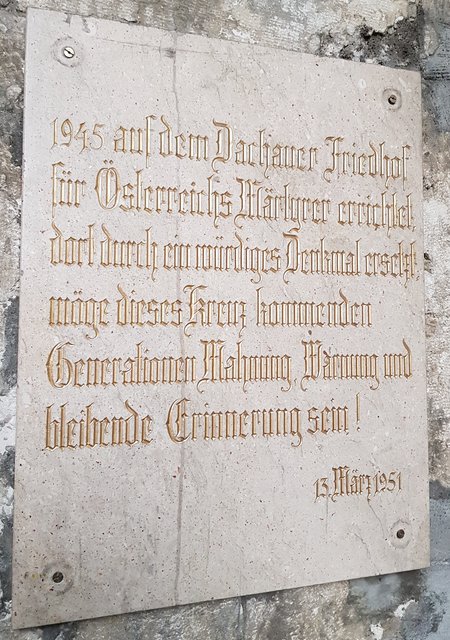 1945 auf dem Dachauer Friedhof
für Österreichs Märtyrer errichtet,
dort durch ein würdiges Denkmal ersetzt,
möge dieses Kreuz kommenden
Generationen Mahnung, Warnung und
bleibende Erinnerung sein!
13. März 1951